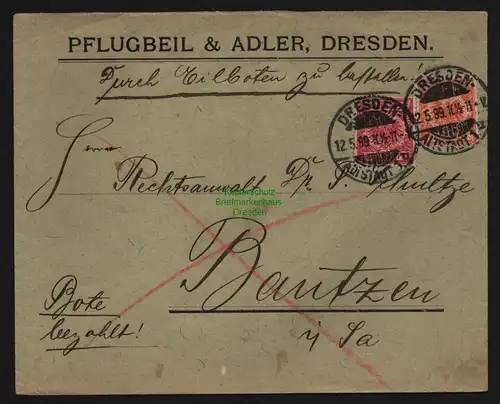 PFLUGBEIL & ADLER, DRESDEN.
Durch Eilboten zu bestellen!
DRESDEN
12.5.99.11½-11-V.
ALTSTADT 1.a
DRESDEN
12.5.99.11½-11-V.
ALTSTADT 1.a
Herrn
Rechtsanwalt Dr. S. Schultze
Kopierschutz
Briefmarkenhaus
Dresden
Bautzen
i/ Sa
Bote
bezahlt!